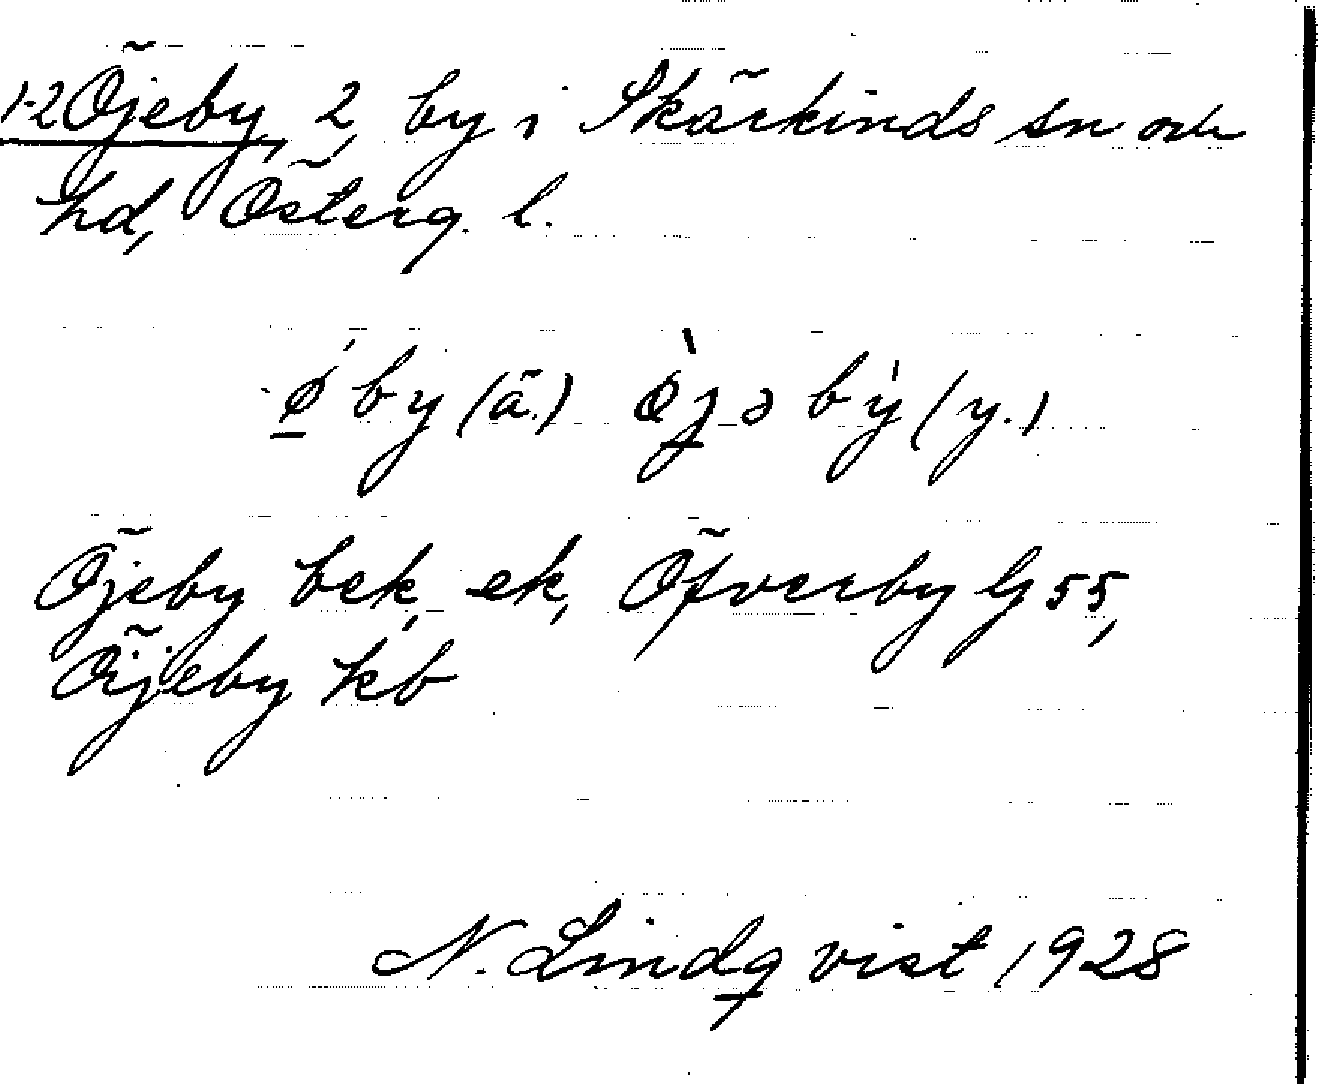 1-2 Öjeby, 2, by i Skärkinds sn och
hd, Österg. l.
ø´by (ä.) ø̀jəbỳ (y.)
Öjeby bek, ek, Öfverby G 55,
Öijeby kb
N. Lindqvist 1928